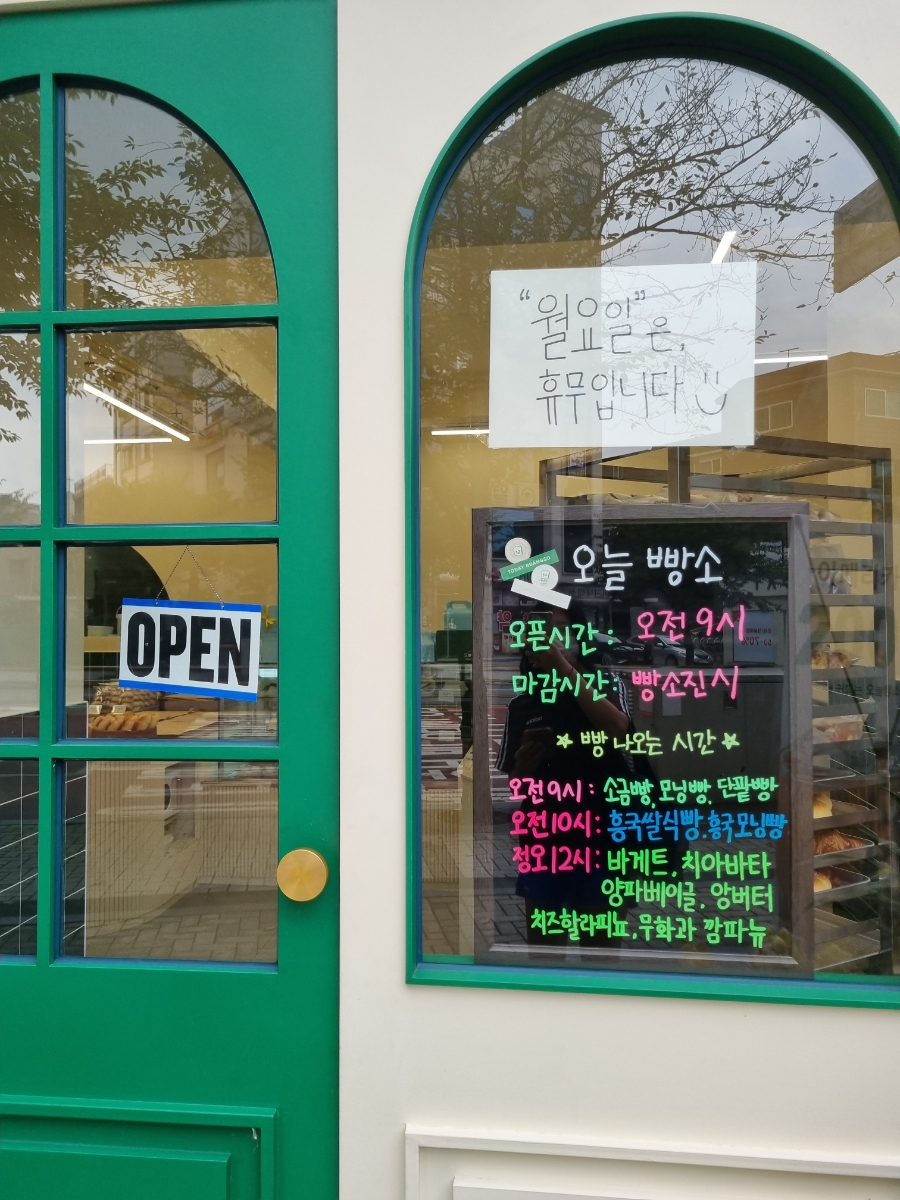 OPEN
"월요일"은,
휴무입니다
오늘 빵소
오픈시간 : 오전 9시
마감시간 : 빵소진시
☆ 빵 나오는 시간 ☆
오전9시 : 소금빵, 모닝빵, 단팥빵
오전10시 : 흥국쌀식빵, 흥국모닝빵
정오12시 : 바게트, 치아바타
양파베이글, 앙버터
치즈할라피뇨, 무화과 깜파뉴